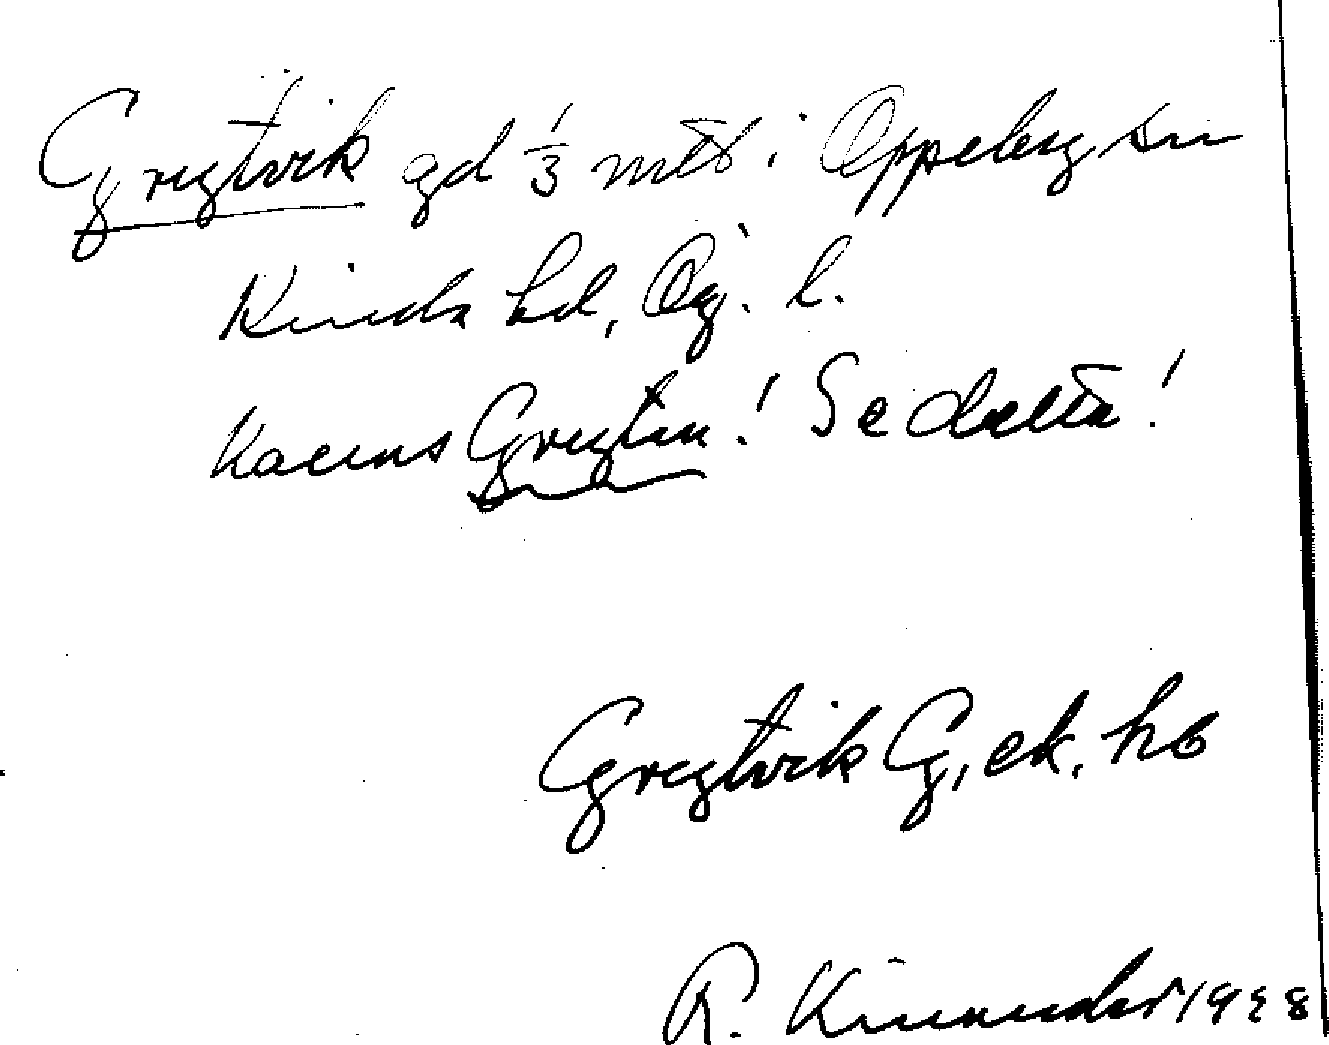 Grytvik gd 1/3 mtl i Oppeby sn
Kinda hd, Ög. l.
Kallas Grytan! Se detta!
Grytvik G, ek. kb
R. Kinander 1928